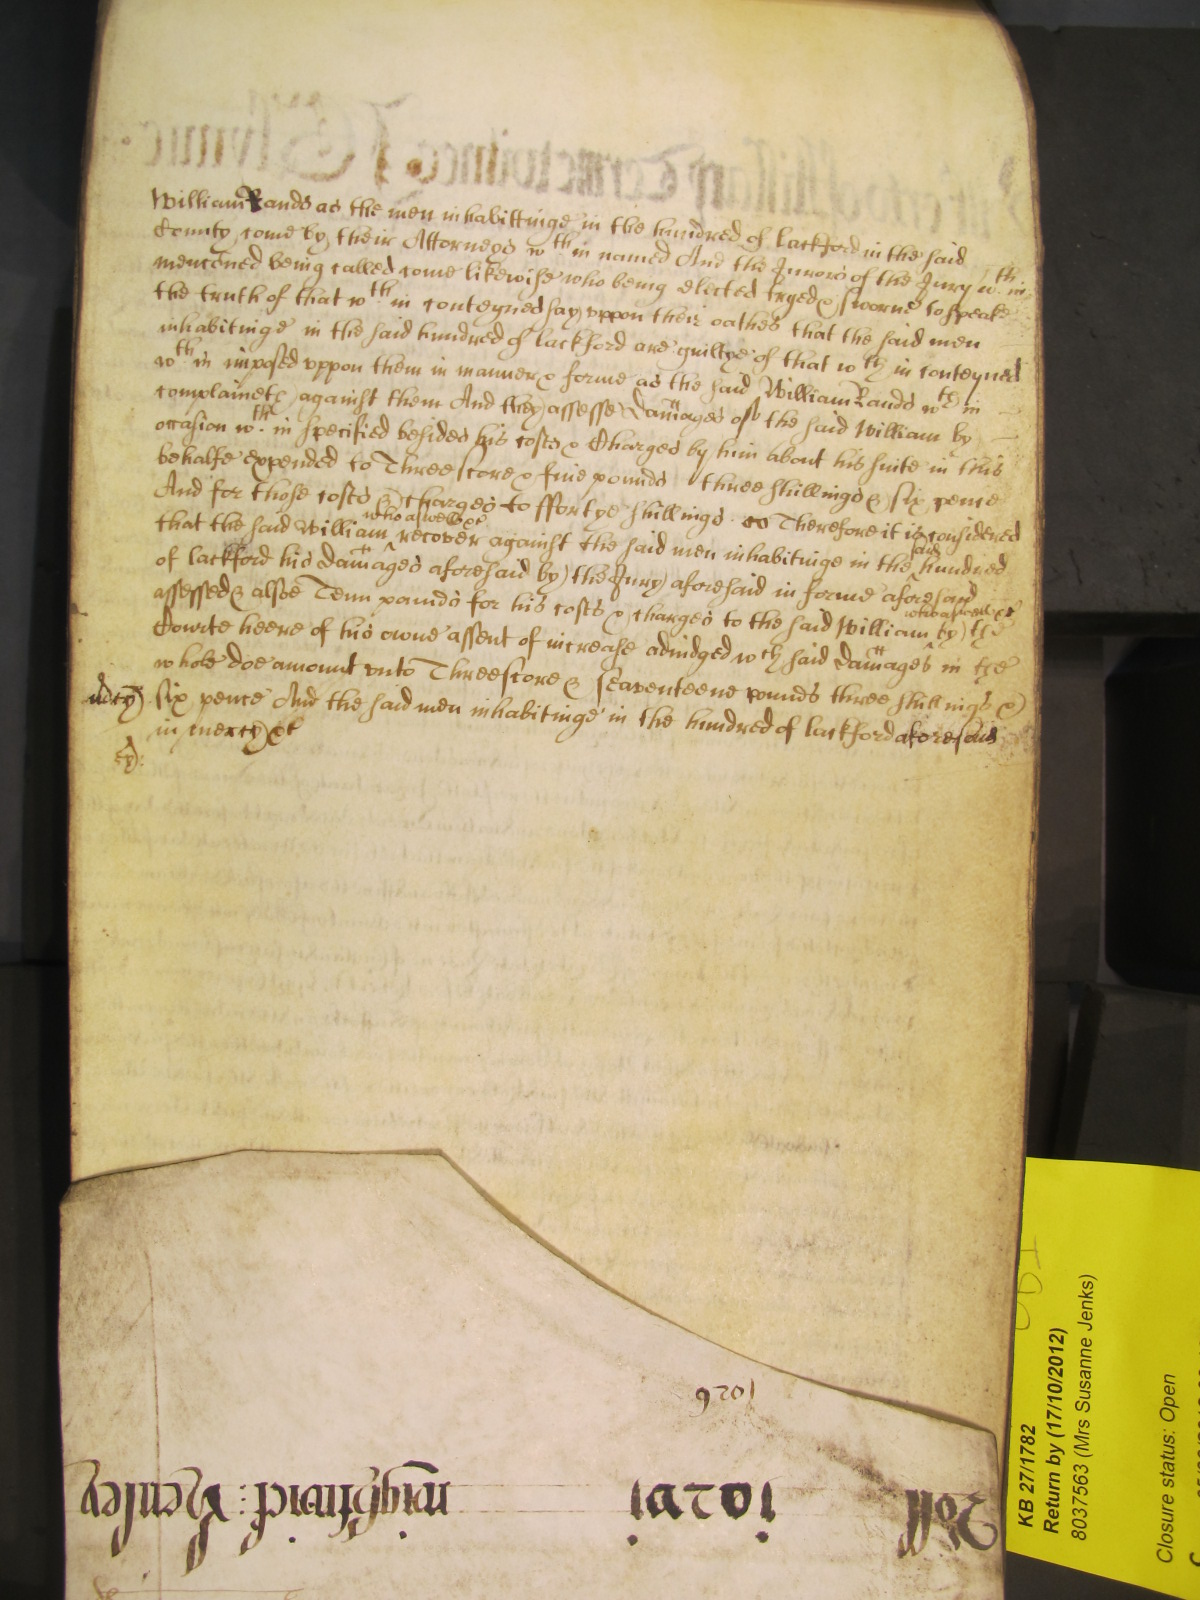 William Rands as the men inhabittinge in the hundred of lackford in the said
County come by their Attorneys wth in named And the Jurors of the Jury wth in
mencõned being called come likewise who being elected tryed & sworne to speake
the truth of that wth in conteyned say vppon their oathes that the said men
inhabitinge in the said hundred of lackford are guiltye of that wth in conteyned
wth in imposed vppon them in manner & forme as the said William Rands wth in
complaineth against them And they assesse damages of the said William by
occasion wth in specified besides his costs & Charges by him about his suite in this
behalfe expended to Threescore & fiue pounds three shillings & six pence
And for those costs & charges to ffortye shillings Therefore it is considered
that the said William who aswell &c recover against the said men inhabitinge in the said hundred
of lackford his damages aforesaid by the Jury aforesaid in forme aforesaid
assessed & alsoe Tenn pounds for his costs & charges to the said William who aswell &c by the
Cowrte heere of his owne assent of increase adiudged wch said damages in the
whole doe amount vnto Threescore & seaventeene pounds three shillings &
six pence And the said men inhabitinge in the hundred of lackford aforesaid
in mercy &c
1026
Roll
Henley
KB 27/1782
Return by (17/10/2012)
8037563 (Mrs Susanne Jenks)
Closure status: Open